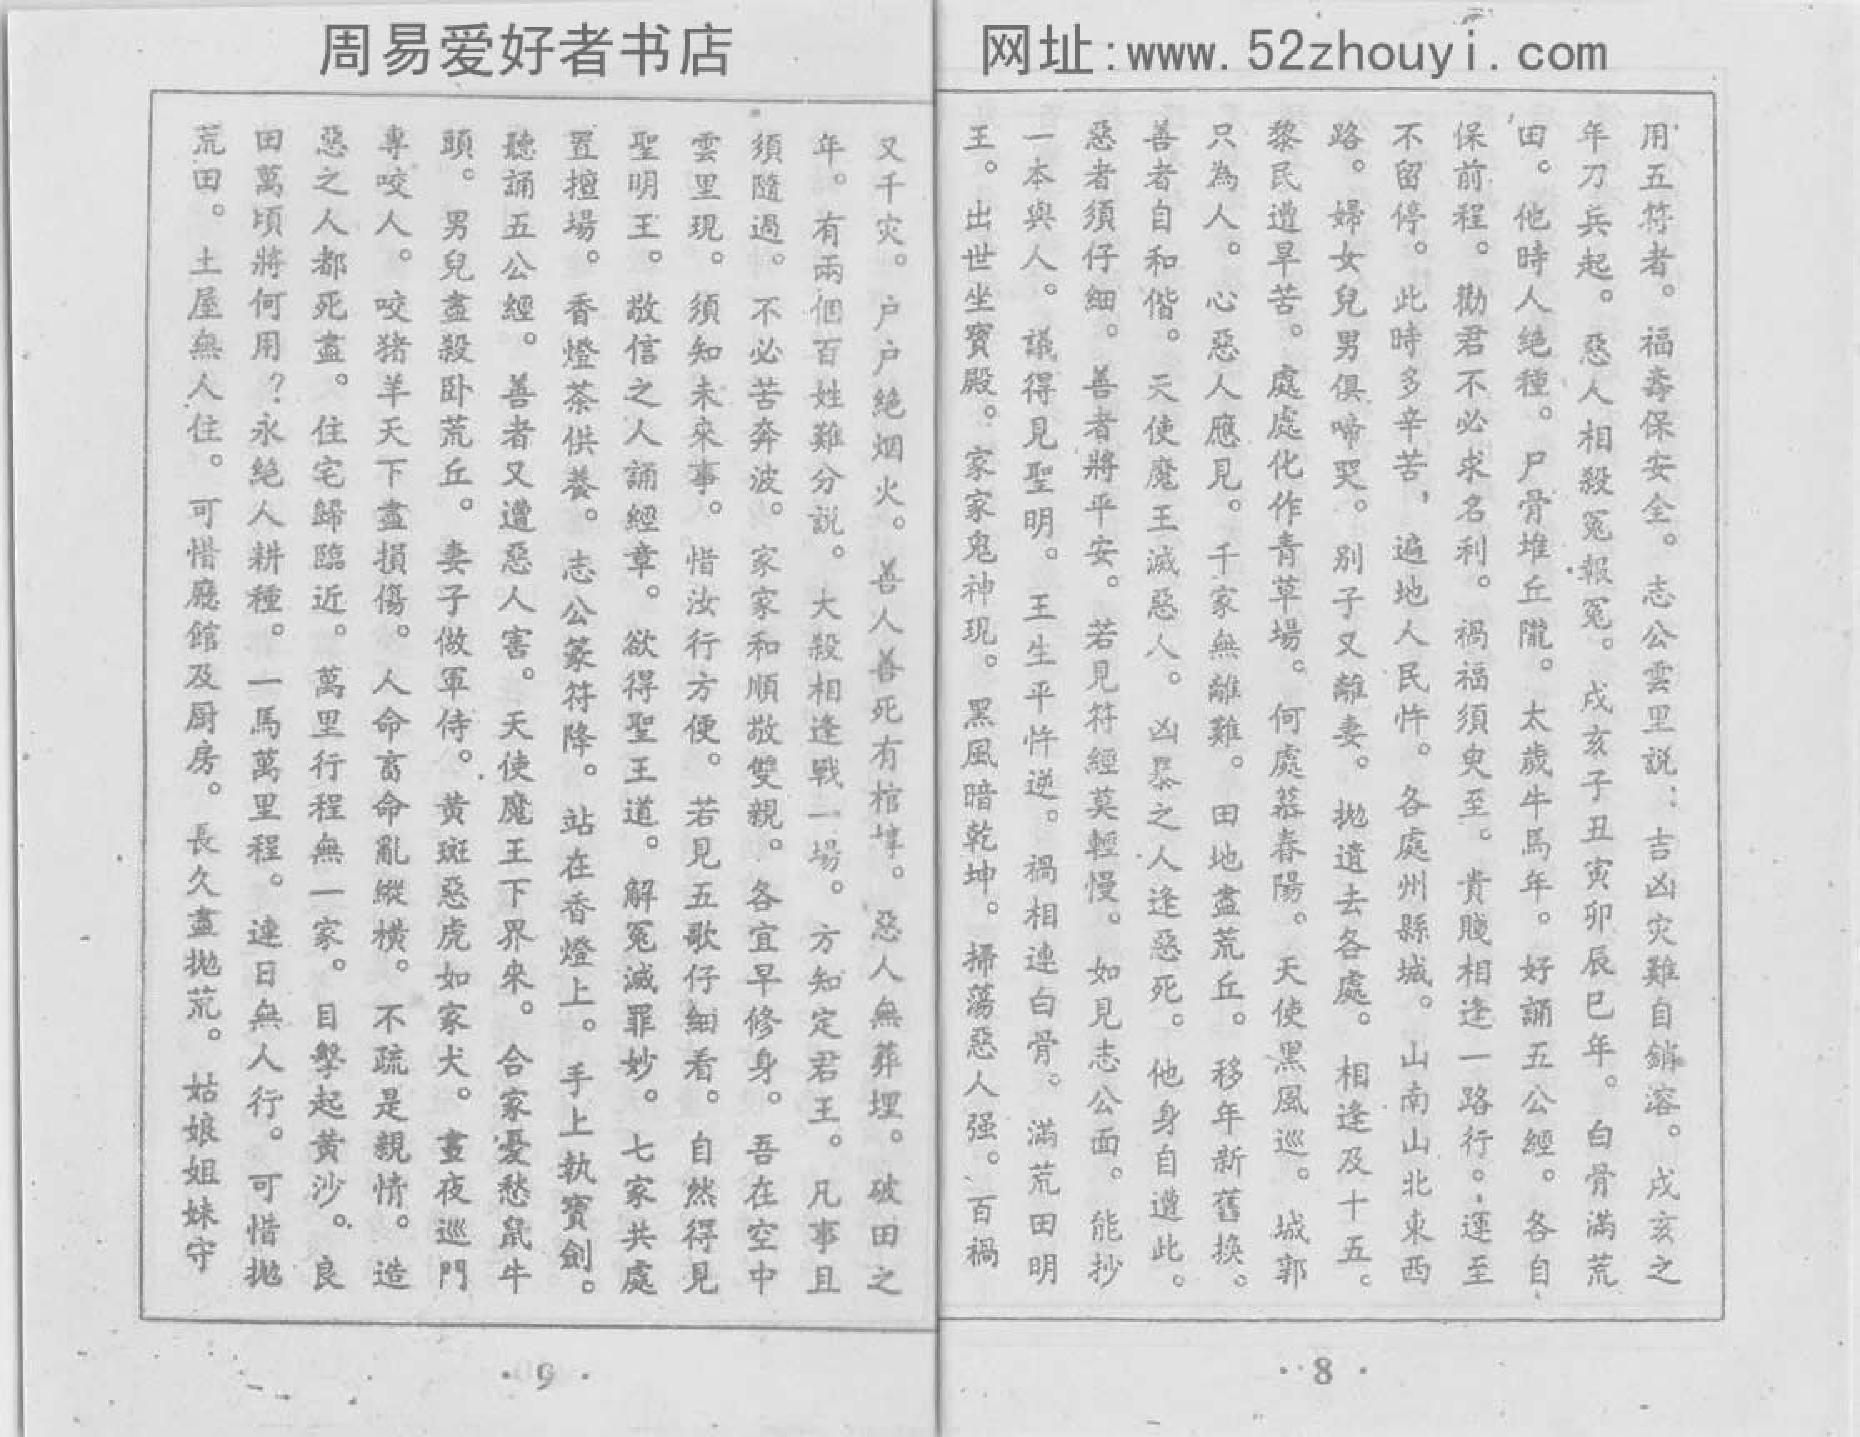 周易爱好者书店
网址:www.52zhouyi.com
用五符者。福壽保安全。志公雲里説：吉凶灾難自銷溶。戌亥之
年刀兵起。惡人相殺冤報冤。戌亥子丑寅卯辰巳年。白骨滿荒
田。他時人绝種。尸骨堆丘隴。太歲牛馬年。好誦五公經。各自
保前程。勸君不必求名利。禍福須臾至。貴賤相逢一路行。運至
不留停。此時多辛苦，遍地人民忤。各處州縣城。山南山北東西
路。婦女兒男俱啼哭。别子又離妻。拋遺去各處。相逢及十五。
黎民遭旱苦。處處化作青草場。何處慕春陽。天使黑風巡。城郭
只為人。心惡人應見。千家無離難。田地盡荒丘。移年新舊換。
善者自和偕。天使魔王滅惡人。凶暴之人逢惡死。他身自遭此。
惡者須仔細。善者將平安。若見符經莫輕慢。如見志公面。能抄
一本與人。議得見聖明。王生平忤逆。禍相連白骨。滿荒田明
王。出世坐寳殿。家家鬼神現。黑風暗乾坤。掃蕩惡人强。百禍
·8·
又千灾。户户絶烟火。善人善死有棺埻。惡人無葬埋。破田之
年。有兩個百姓難分説。大殺相逢戰一場。方知定君王。凡事且
須隨過。不必苦奔波。家家和順敬雙親。各宜早修身。吾在空中
雲里現。須知未來事。惜汝行方便。若見五歌仔細看。自然得見
聖明王。敬信之人誦經章。欲得聖王道。解冤滅罪妙。七家共處
置擅場。香燈茶供養。志公篆符降。站在香燈上。手上執寳劍。
聽誦五公經。善者又遭惡人害。天使魔王下界來。合家憂愁鼠牛
頭。男兒盡殺卧荒丘。妻子做軍侍。黄斑惡虎如家犬。晝夜巡門
專咬人。咬猪羊天下盡損傷。人命畜命亂縱横。不疏是親情。造
惡之人都死盡。住宅歸臨近。萬里行程無一家。目擊起黄沙。良
田萬頃將何用？永絶人耕種。一馬萬里程。連日無人行。可惜拋
荒田。土屋無人住。可惜廳館及厨房。長久盡拋荒。姑娘姐妹守
·9·